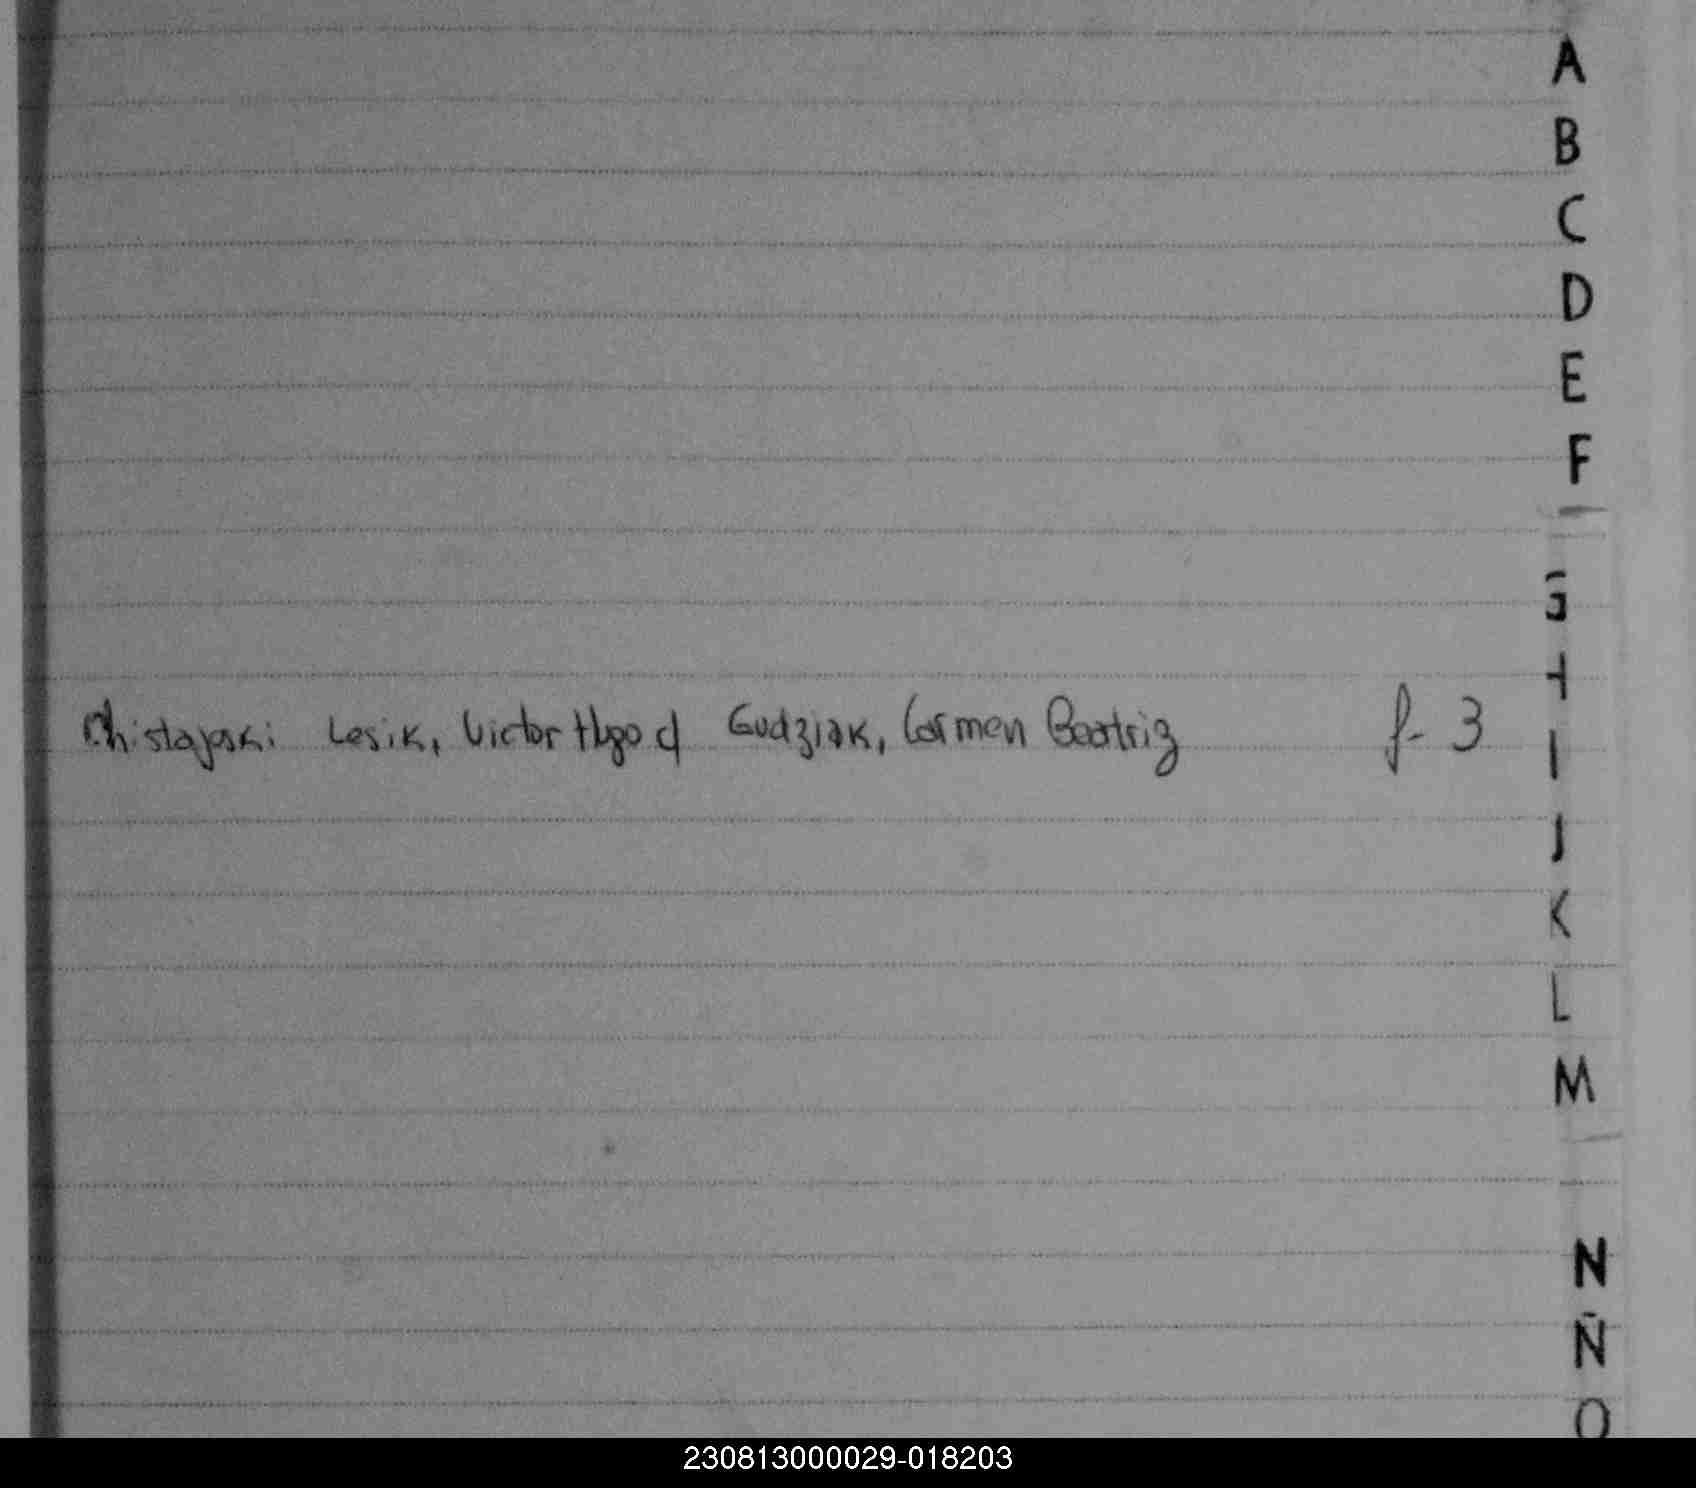 A
B
C
D
E
F
G
H
I
Lesik, Victor Hugo y Gudziak, Carmen Beatriz f- 3
J
K
L
M
N
Ñ
O
230813000029-018203